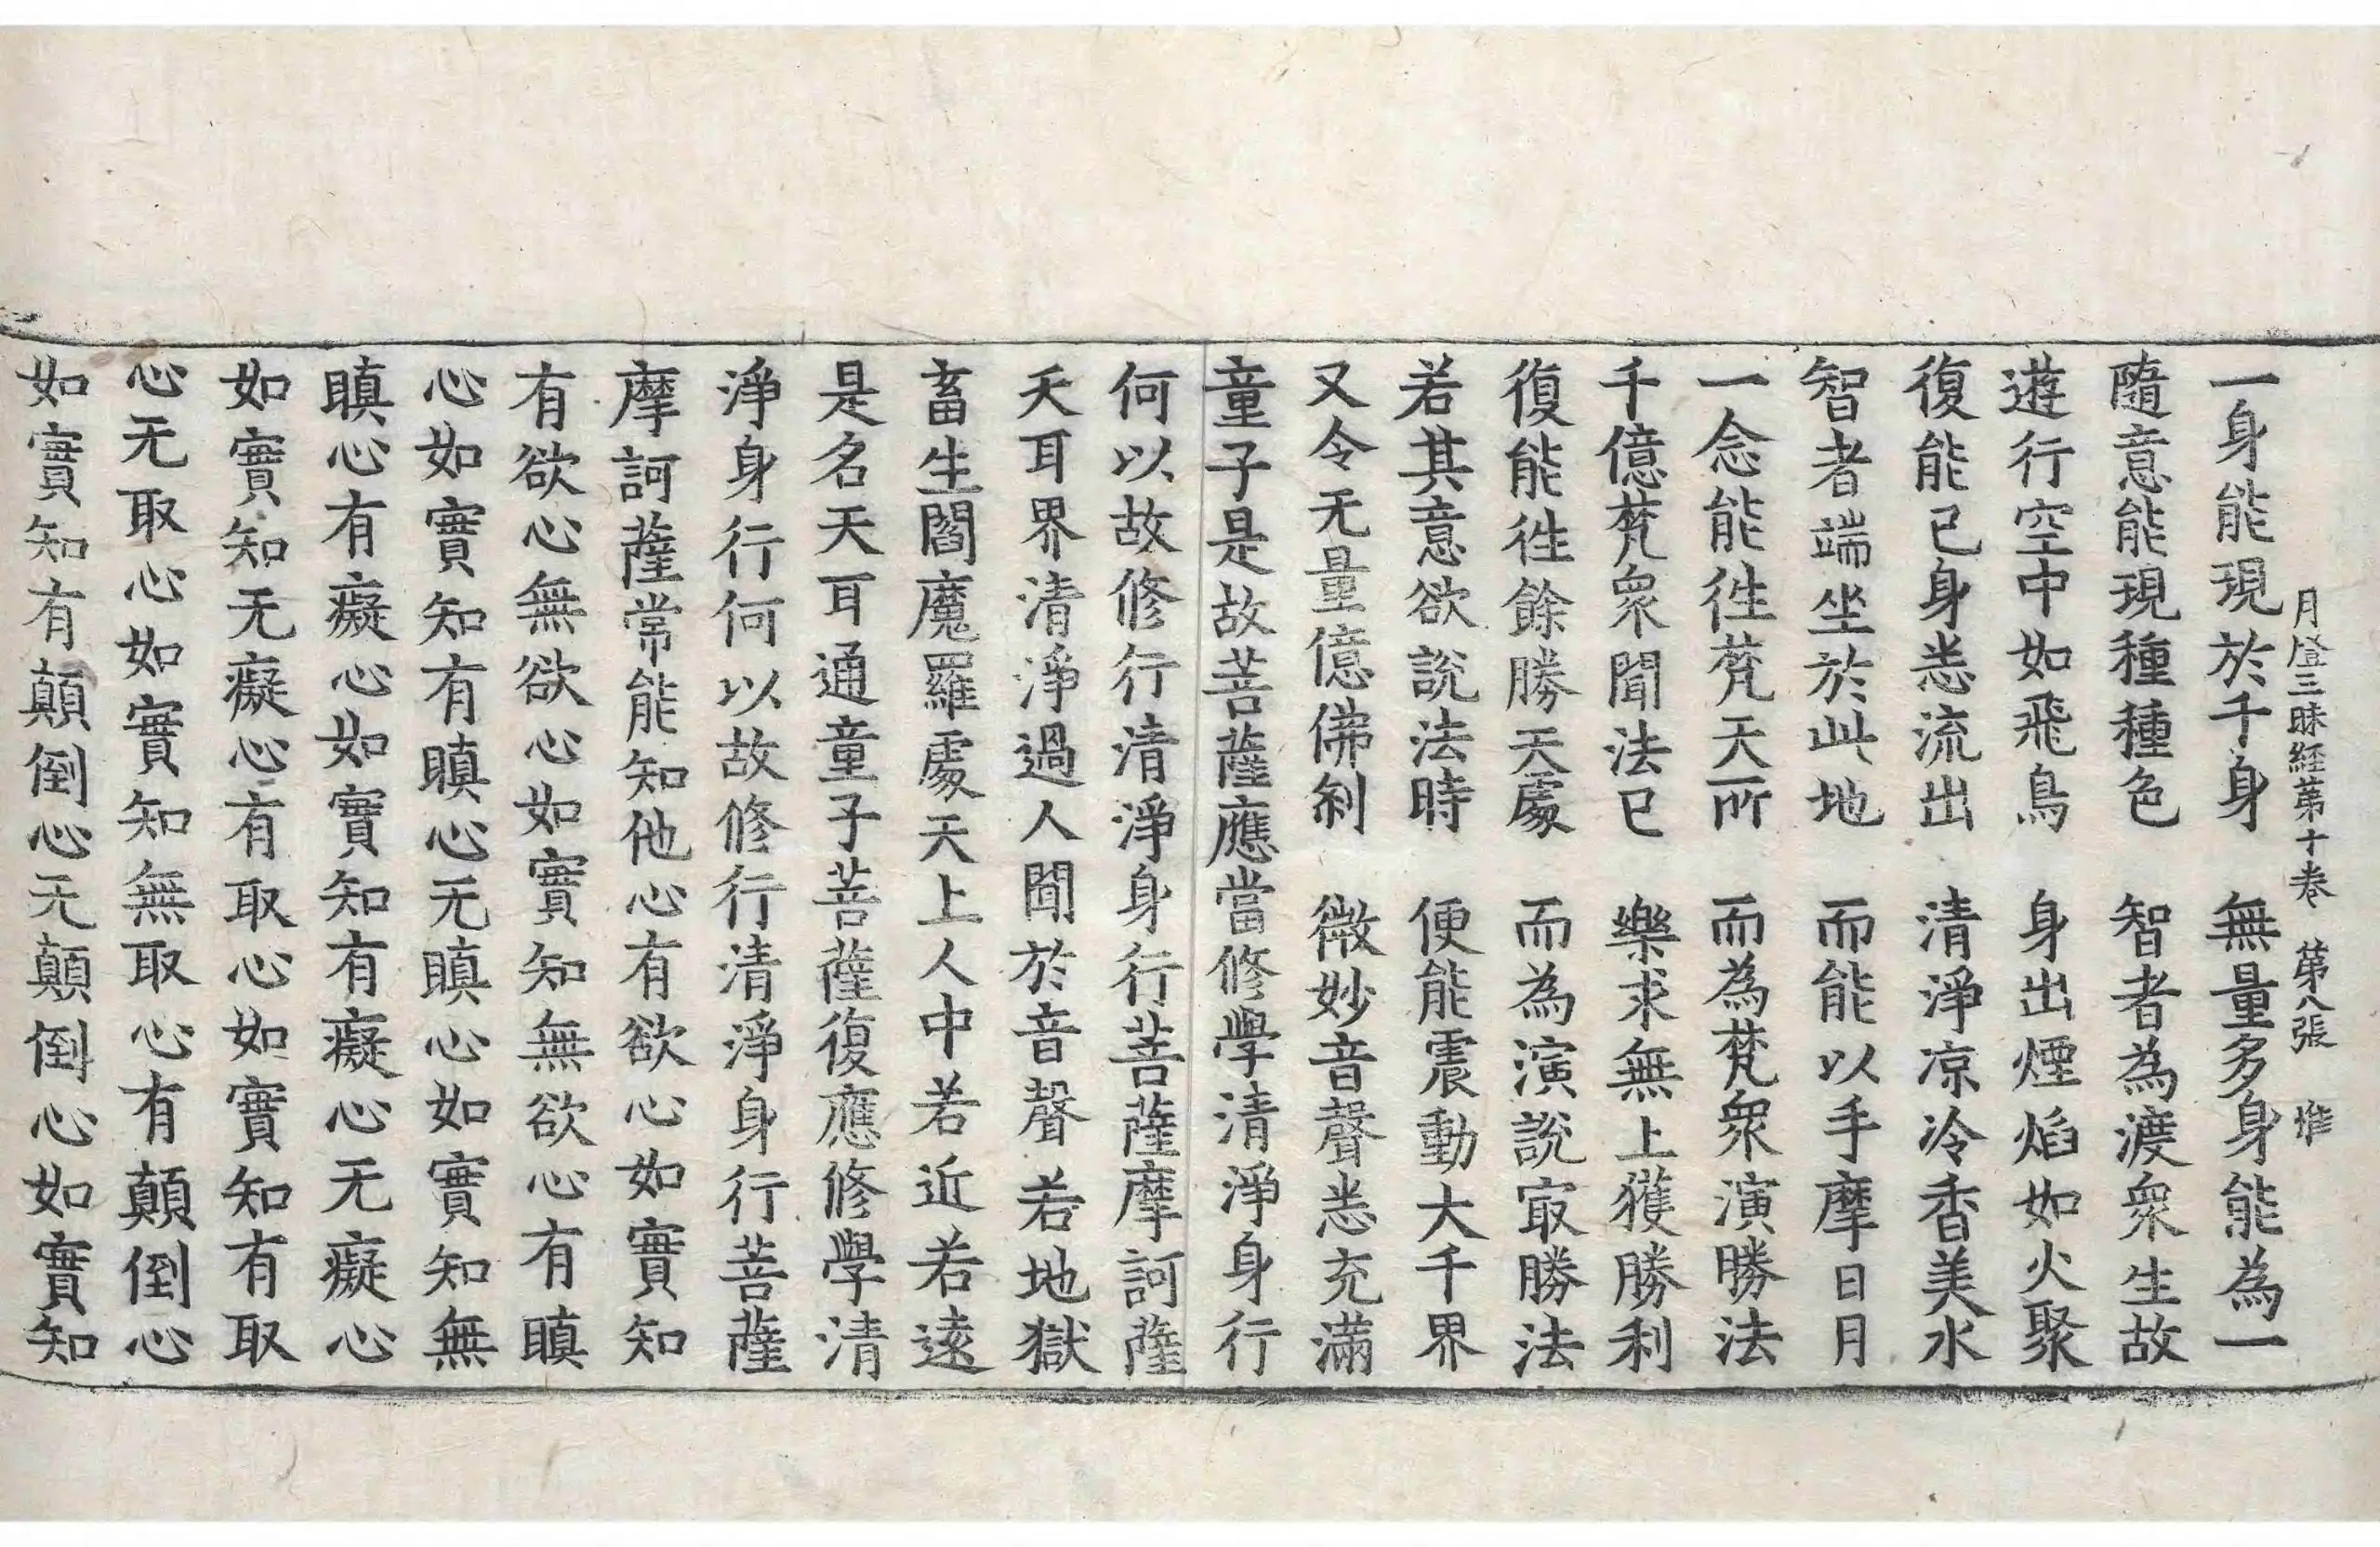 月燈三昧経苐十卷　苐八張　推
一身能現於千身　無量多身能為一
隨意能現種種色　智者為渡衆生故
遊行空中如飛鳥　身出煙焰如火聚
復能已身悉流出　清淨凉冷香美水
智者端坐於此地　而能以手摩日月
一念能徃梵天所　而為梵衆演勝法
千億梵衆聞法已　樂求無上獲勝利
復能徃餘勝天處　而為演說㝡勝法
若其意欲說法時　便能震動大千界
又令无量億佛刹　微妙音聲悉充滿
童子是故菩薩應當修學清淨身行
何以故修行清淨身行菩薩摩訶薩
天耳界清淨過人聞於音聲若地獄
畜生閻魔羅處天上人中若近若遠
是名天耳通童子菩薩復應修學清
淨身行何以故修行清淨身行菩薩
摩訶薩常能知他心有欲心如實知
有欲心無欲心如實知無欲心有瞋
心如實知有瞋心无瞋心如實知無
瞋心有癡心如實知有癡心无癡心
如實知无癡心有取心如實知有取
心无取心如實知無取心有顛倒心
如實知有顛倒心无顛倒心如實知